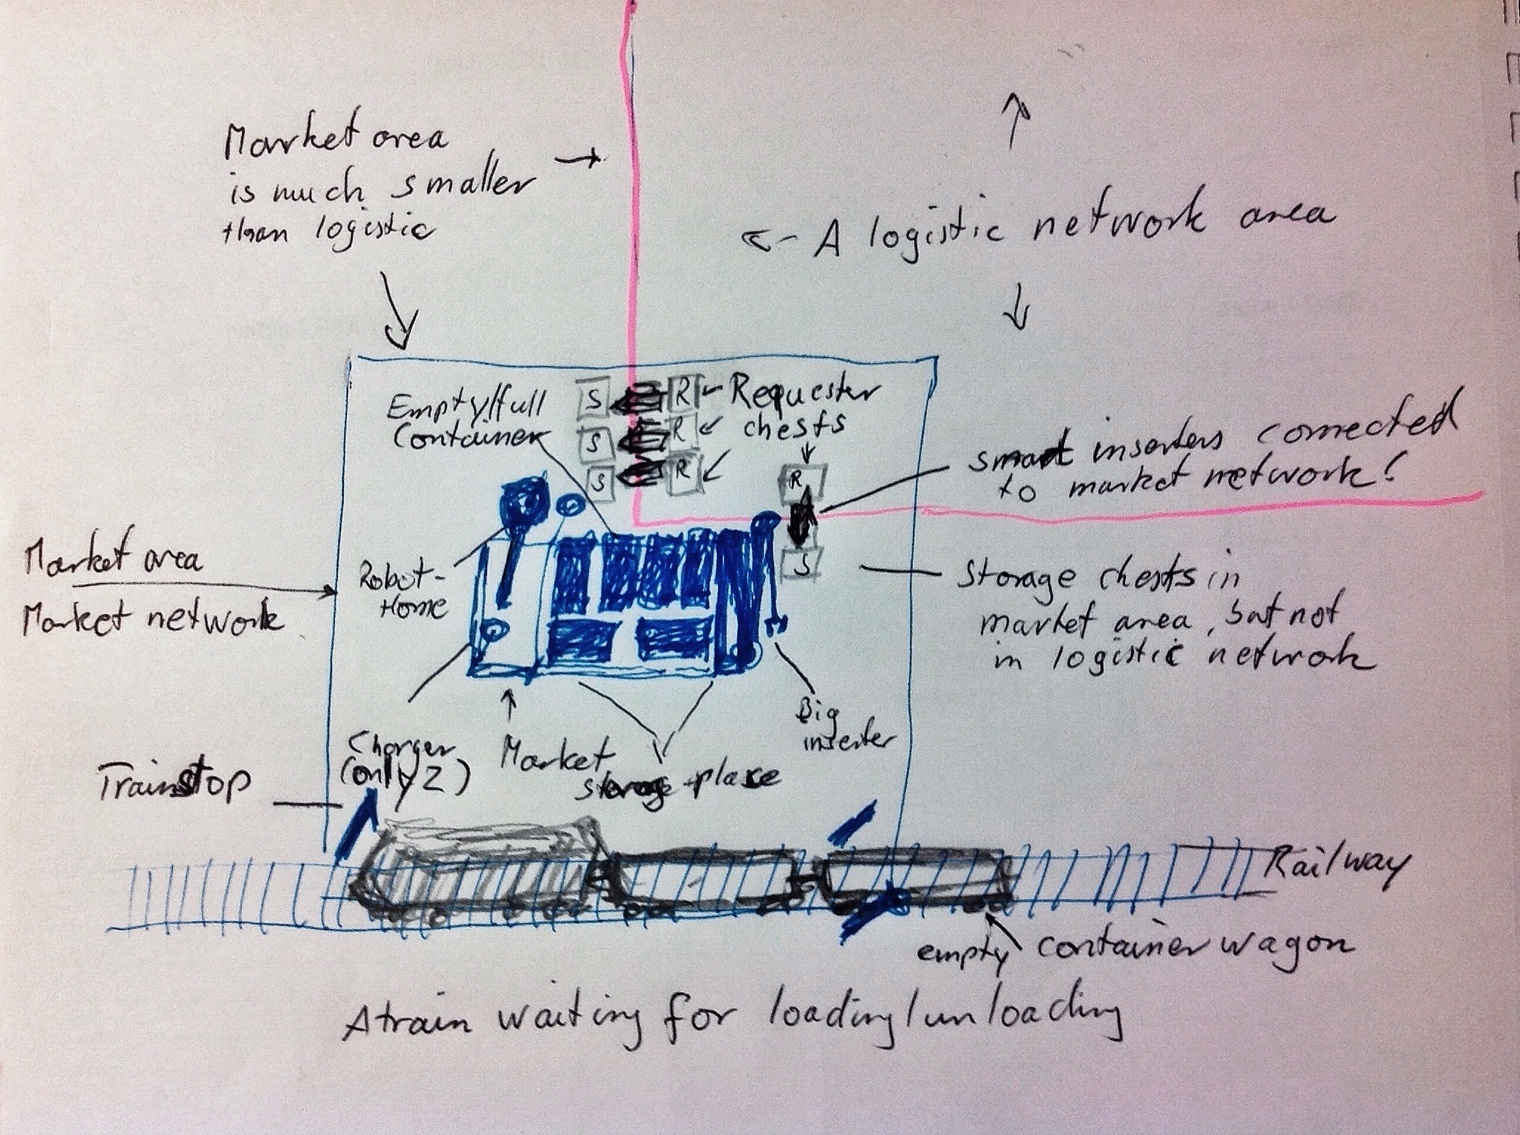 Market area
is much smaller
than logistic
A logistic network area
Empty/full
Container
S R
S R
S R
Requester
chests
R
S
smart inserters connected
to market network!
Market area
Market network
Robot-
Home
Storage chests in
market area, but not
in logistic network
Charger
(only 2)
Market
storage place
Big
inserter
Trainstop
Railway
empty container wagon
A train waiting for loading/unloading